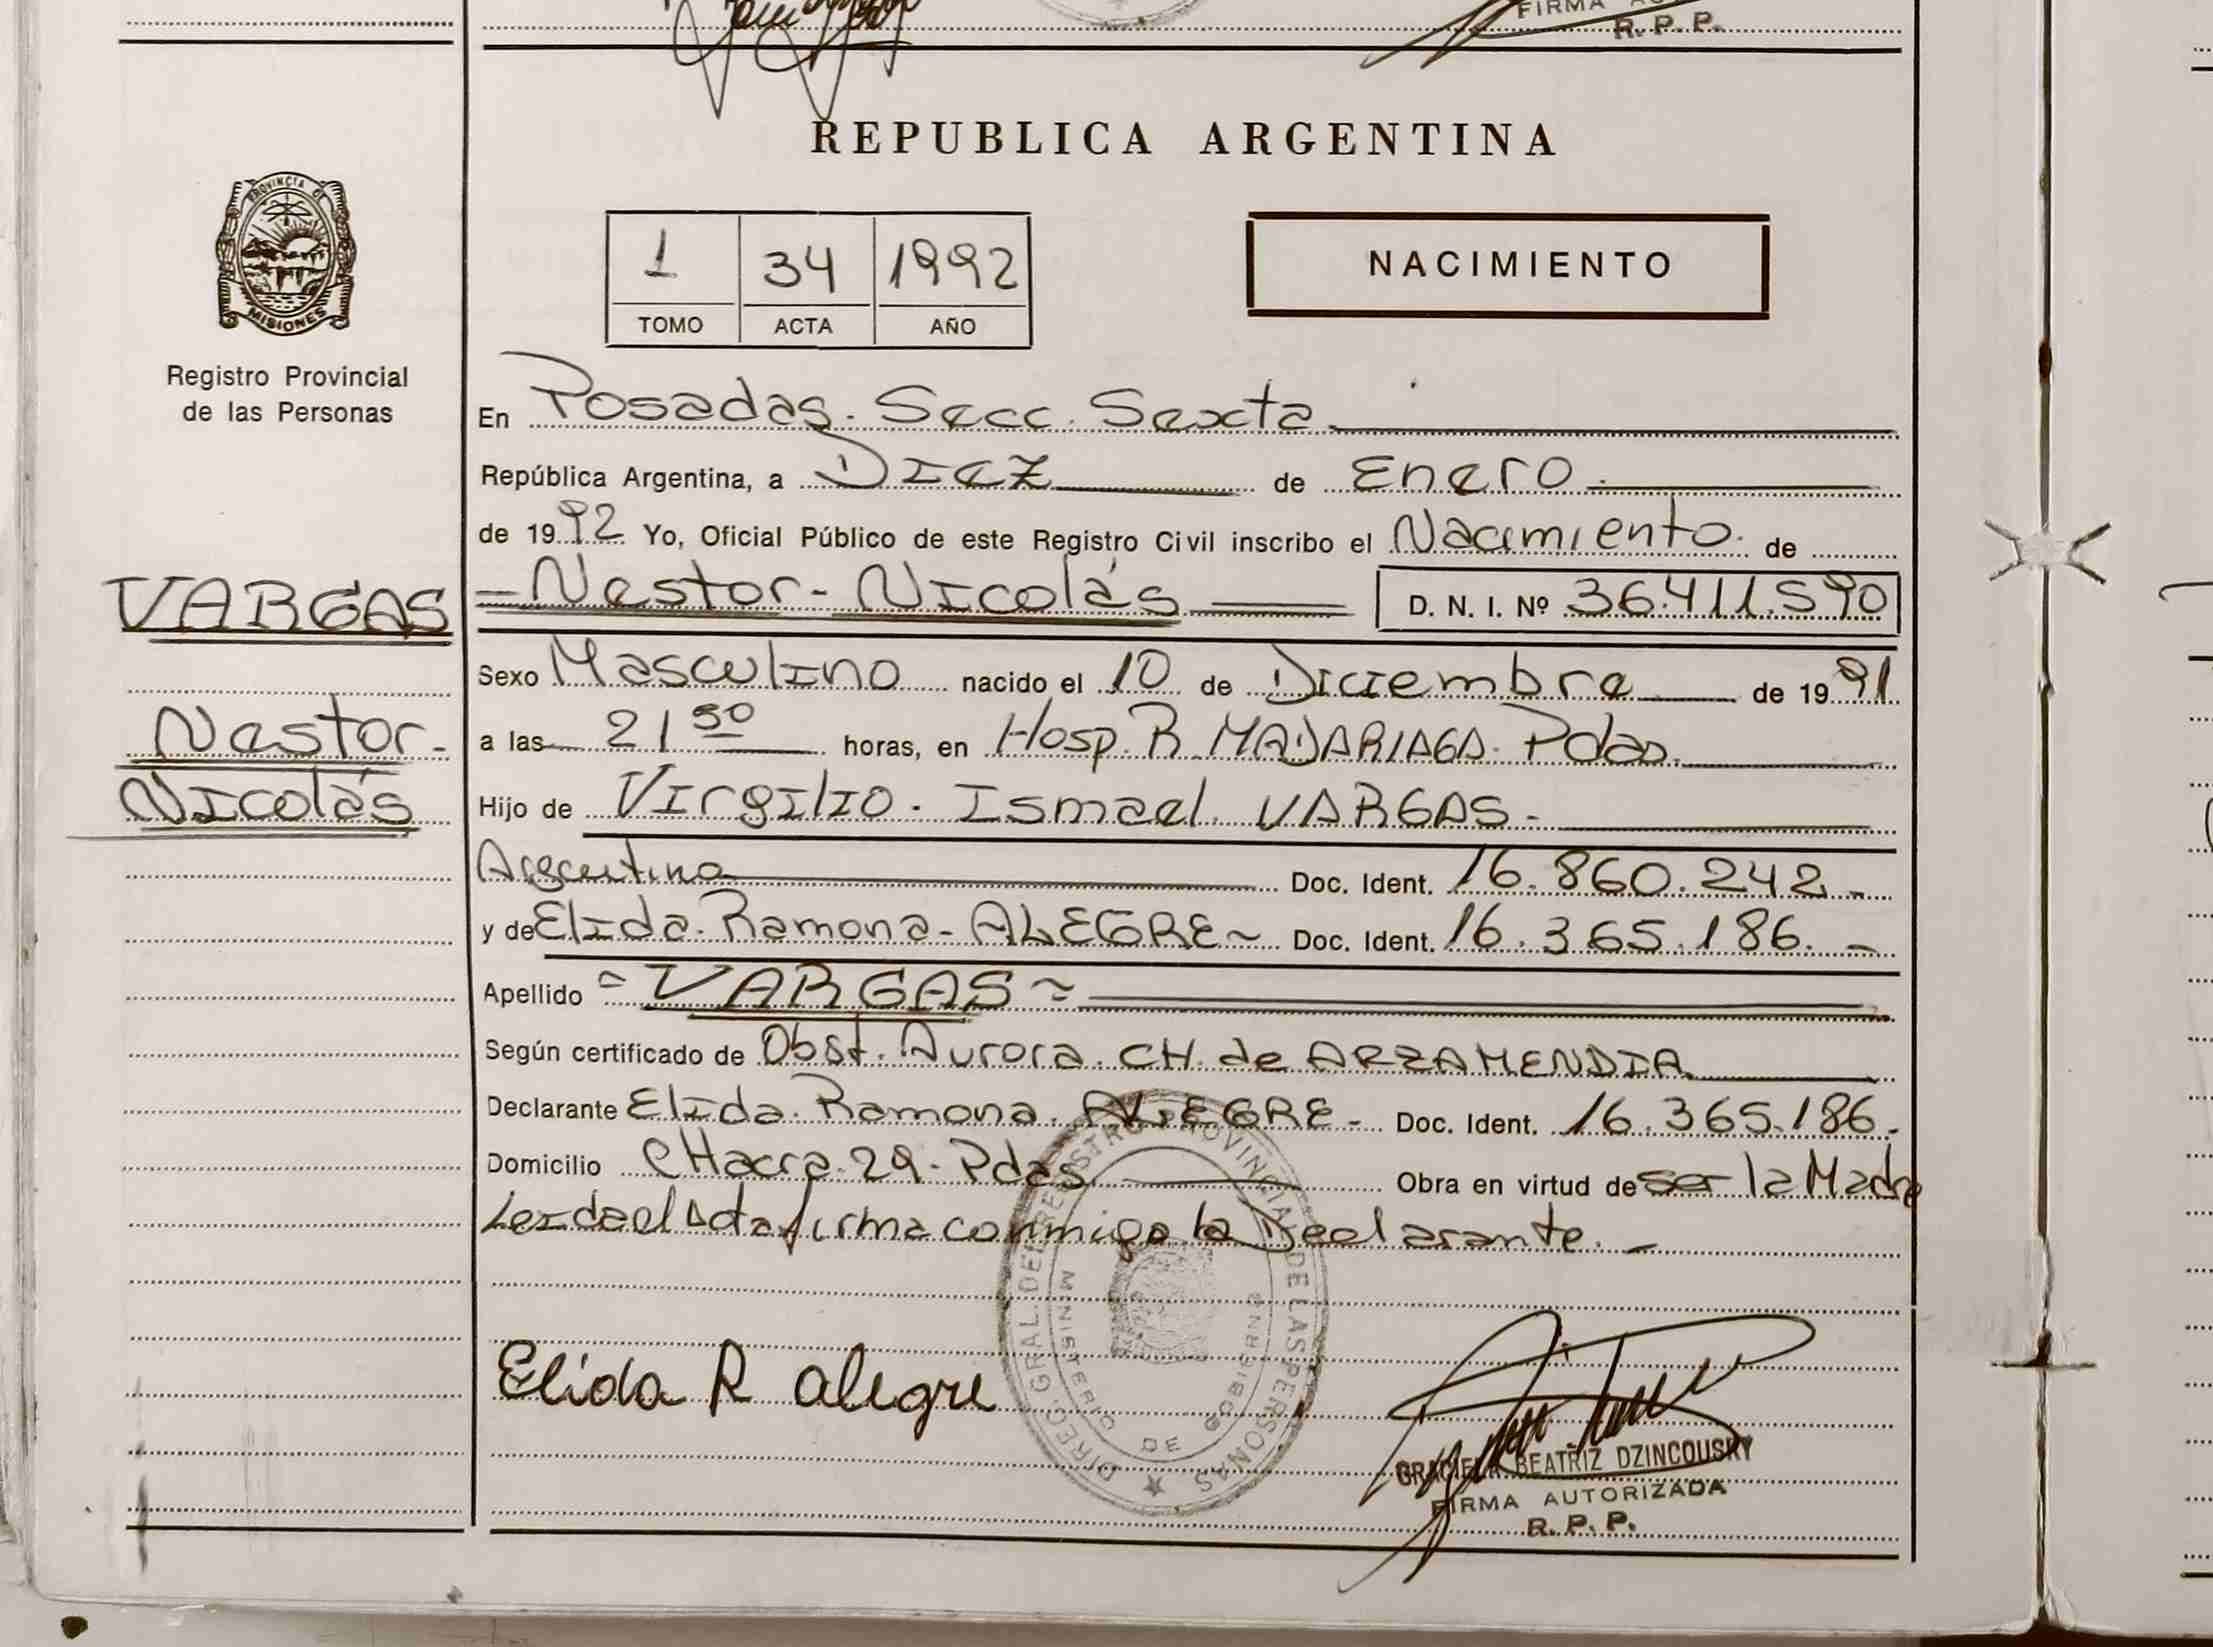 FIRMA
R. P. P.
REPUBLICA ARGENTINA
PROVINCIA DE
MISIONES
Registro Provincial
de las Personas
1 34 1992
TOMO ACTA AÑO
NACIMIENTO
VARGAS
Nestor-
Nicolás
En Posadas. Secc. Sexta
República Argentina, a Diez de Enero
de 1992 Yo, Oficial Público de este Registro Civil inscribo el Nacimiento. de
=Nestor- Nicolás D. N. I. Nº 36.411.590
Sexo Masculino nacido el 10 de Diciembre de 1991
a las 21 50 horas, en Hosp. R. MADARIAGA. Pdas.
Hijo de Virgilio. Ismael. VARGAS-
Argentino Doc. Ident. 16.860.242-
y de Elida. Ramona- ALEGRE~ Doc. Ident. 16.365.186.-
Apellido =VARGAS=
Según certificado de Obst. Aurora. CH. de ARZAMENDIA.
Declarante Elida. Ramona. ALEGRE- Doc. Ident. 16.365.186.
Domicilio CHacra. 29. Pdas Obra en virtud de ser la Madre
Leida el Acta firma conmigo la Declarante.-
DIREC. GRAL. DEL REGISTRO PROVINCIAL DE LAS PERSONAS
MINISTERIO DE GOBIERNO
Elida R alegre
GRACIELA BEATRIZ DZINCOUSKY
FIRMA AUTORIZADA
R. P. P.